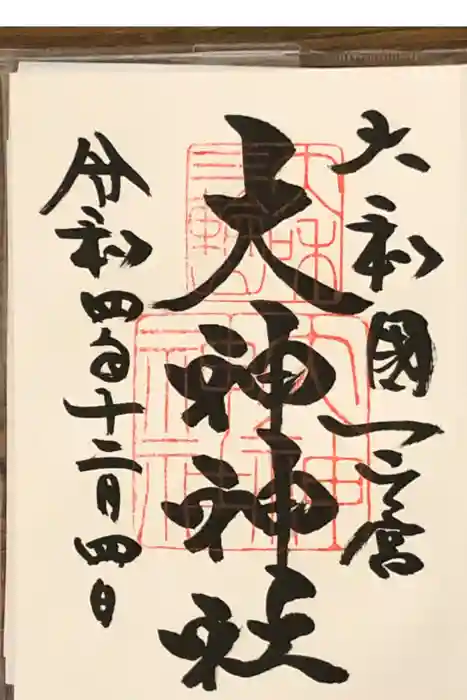 大和國一之宮
大神神社
令和四年十二月四日